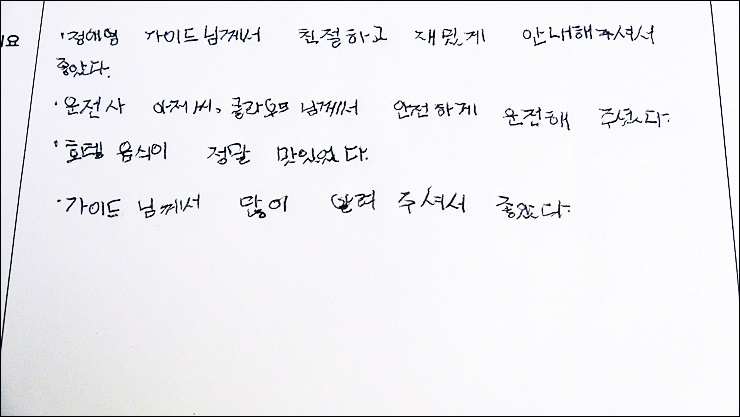 요
·정애영 가이드님께서 친절하고 재밌게 안내해주셔서
좋았다.
·운전사 아저씨, 님께서 안전하게 운전해 주셨다.
·호텔 음식이 정말 맛있었다.
·가이드 님께서 많이 알려 주셔서 좋았다.